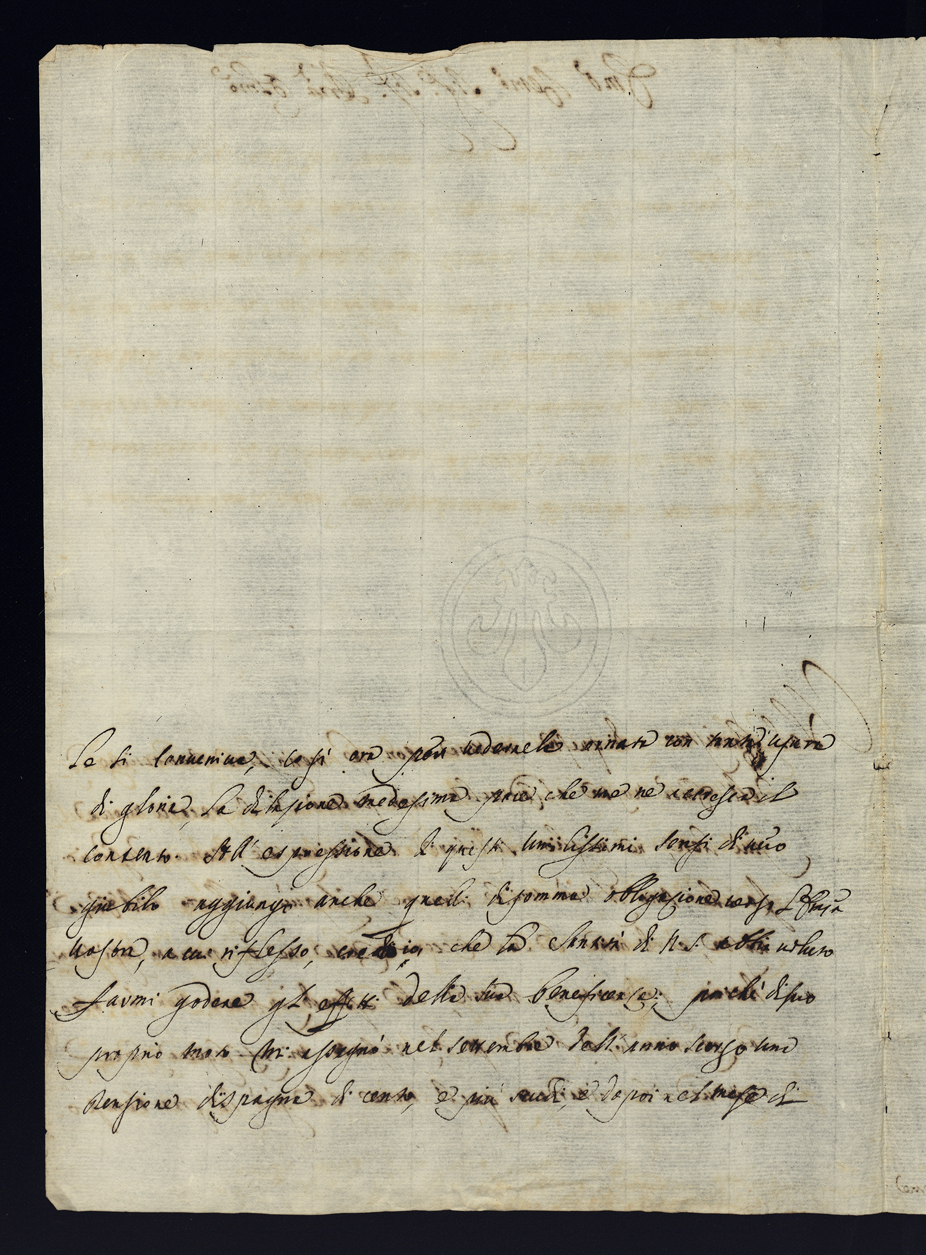 se li conveniva, così ora per vedernela ornata con tanta usura
di gloria, la distesione medesima fece, che me ne accresca il
contento. All' espressione di questi umilissimi sensi di mio
giubilo aggiungo anche quelli di somma obbligazione verso l'
Vostra, a cui riflesso, credo io, che la Santità di N. S. abbia voluto
farmi godere gl' effetti della sua beneficenza; poiché di suo
proprio moto mi assegnò nel settembre dell' anno scorso una
Pensione di Spagna di cento, e più scudi, e dopoi nel mese di